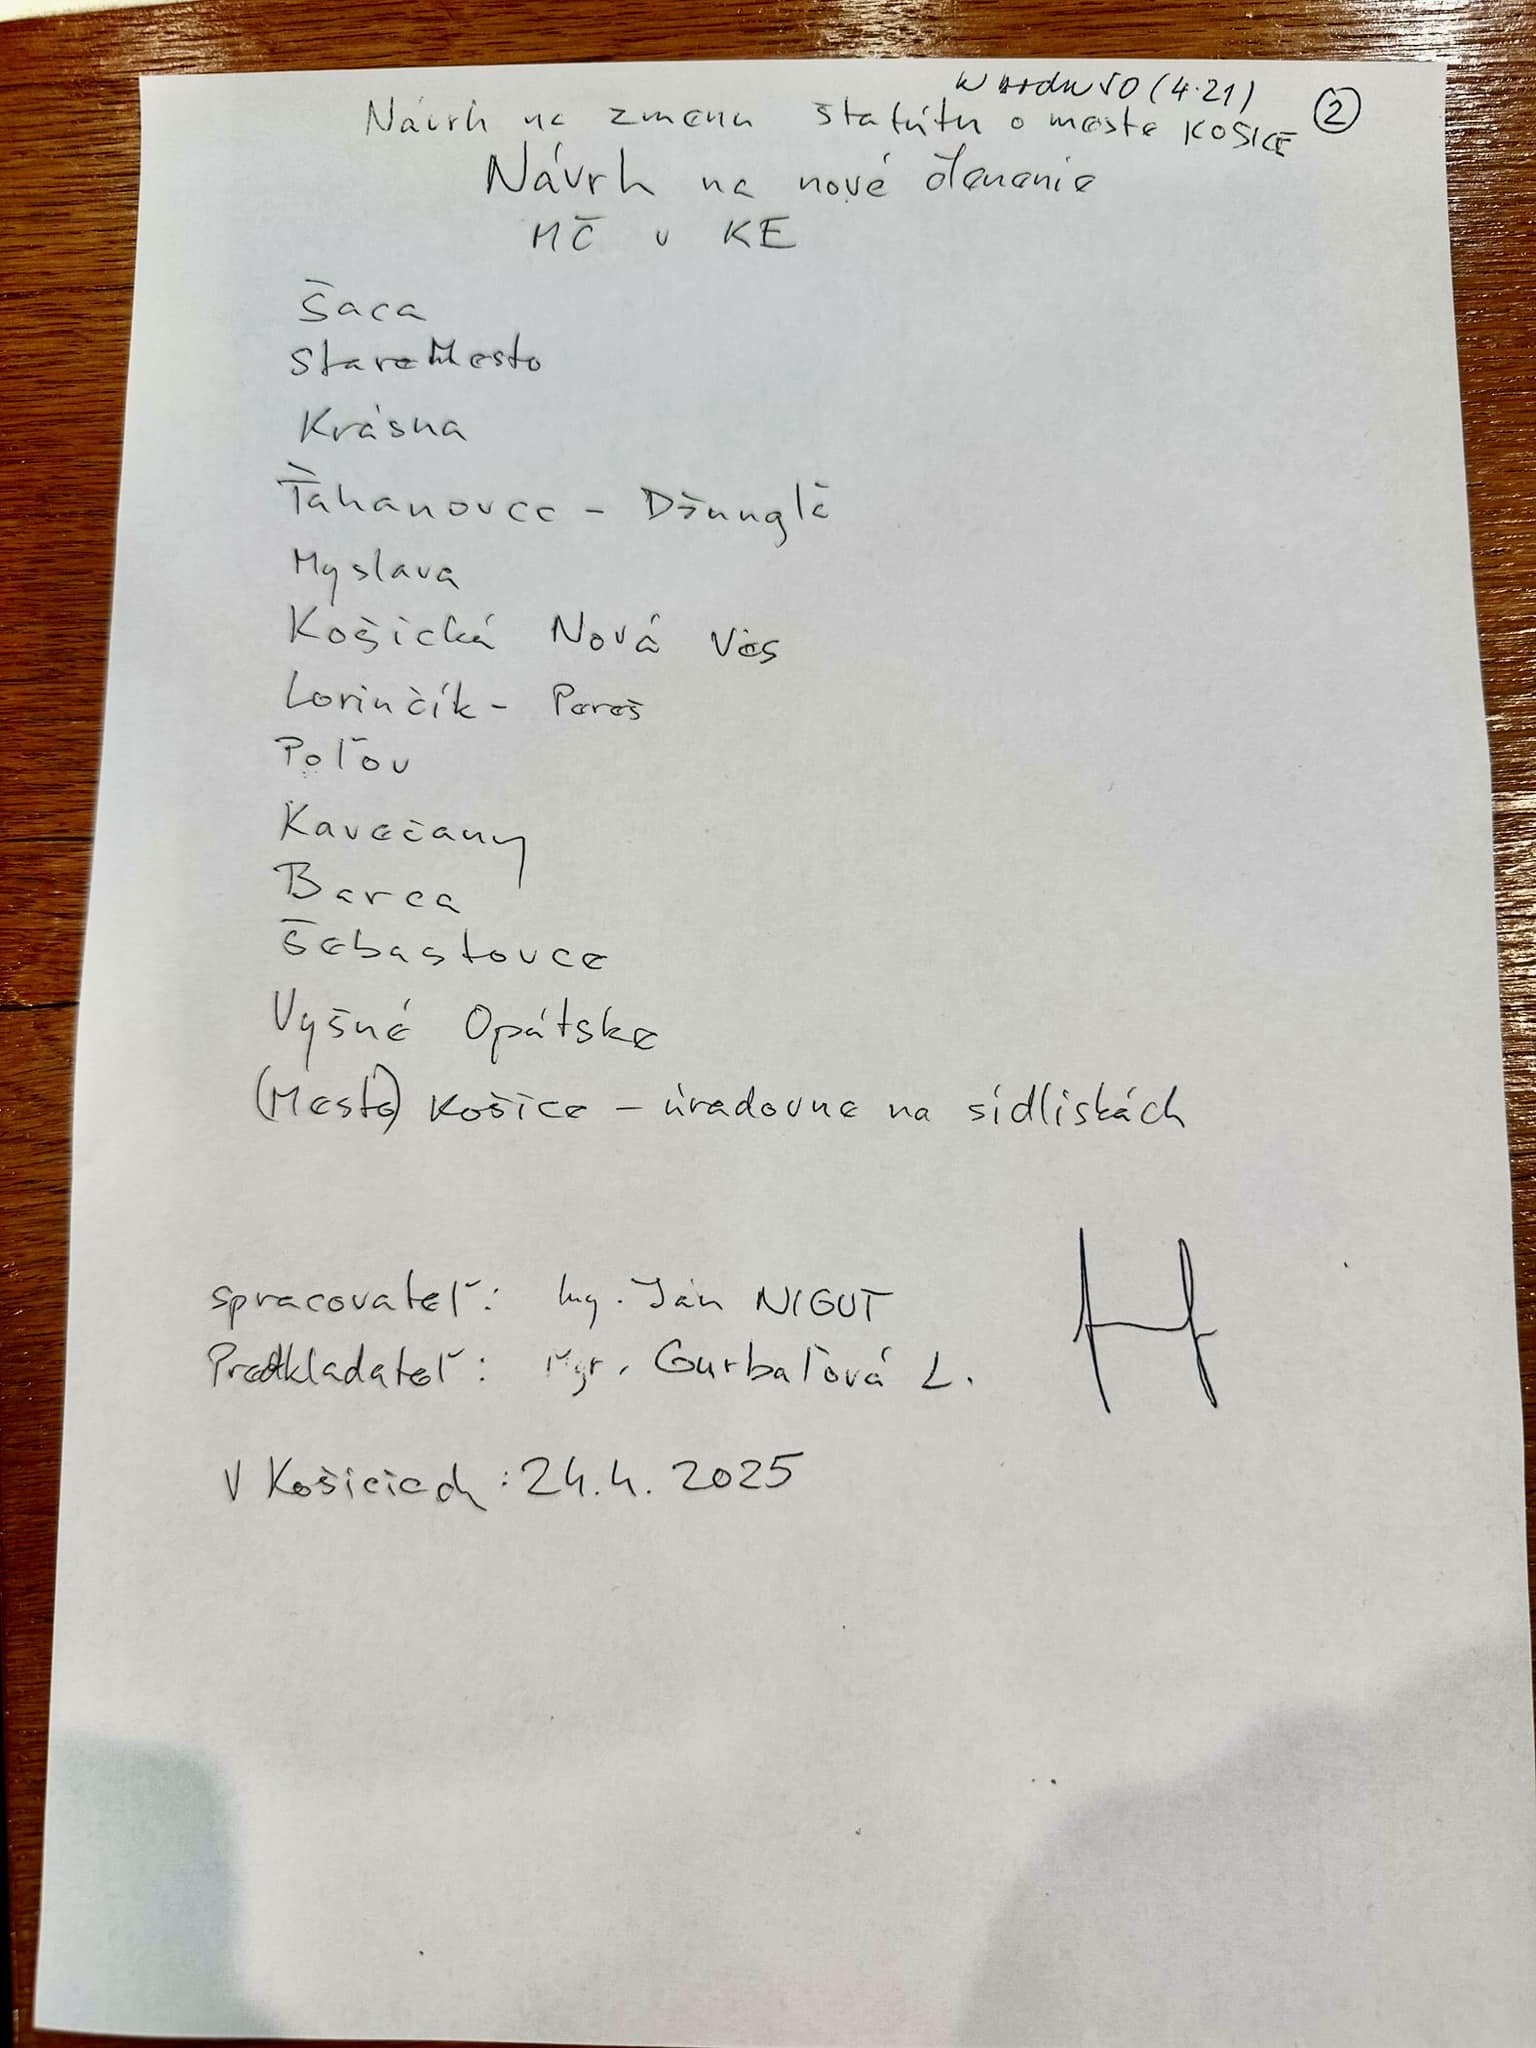 k bodu 50 (4.21)
2
Návrh na zmenu štatútu o meste KOŠICE
Návrh na nové členenie
MČ v KE
Šaca
Stare Mesto
Krásna
Ťahanovce - Džungľe
Myslava
Košická Nová Ves
Lorinčík - Pereš
Poľov
Kavečany
Barca
Šebastovce
Vyšné Opátske
(Mesto) Košice - úradovne na sídliskách
spracovateľ: Ing. Ján NIGUT
Predkladateľ: Mgr. Gurbaľová L.
V Košiciach: 24.4. 2025